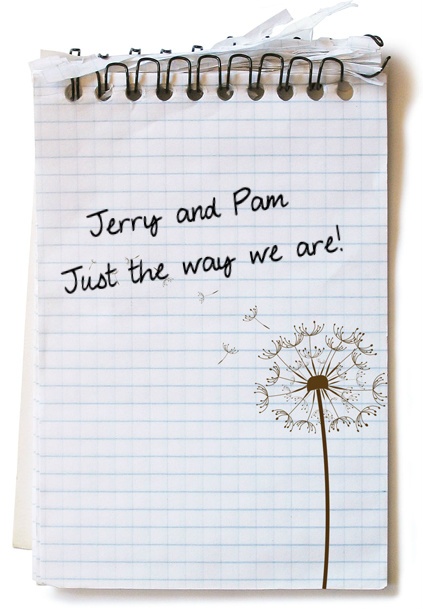 Jerry and Pam
Just the way we are!